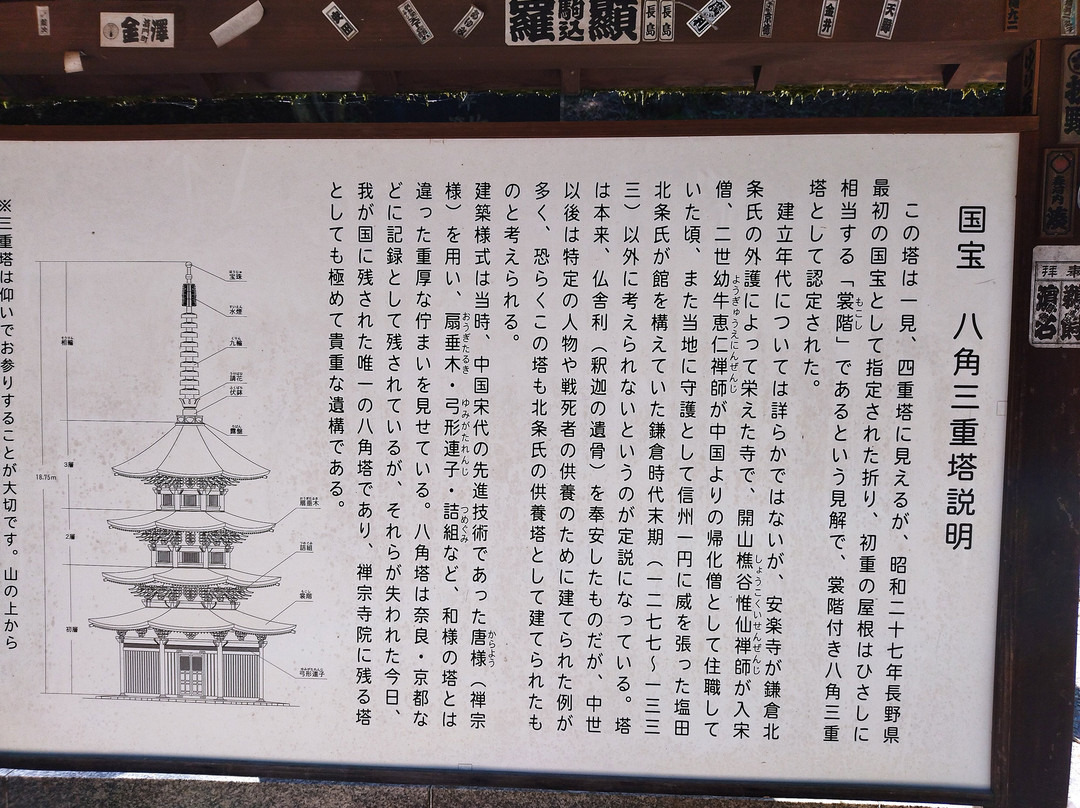 金澤
羅
駒込
顯
長島
長島
金井
国宝　八角三重塔説明
この塔は一見、四重塔に見えるが、昭和二十七年長野県
最初の国宝として指定された折り、初重の屋根はひさしに
相当する「裳階」であるという見解で、裳階付き八角三重
もこし
塔として認定された。
建立年代については詳らかではないが、安楽寺が鎌倉北
条氏の外護によって栄えた寺で、開山樵谷惟仙禅師が入宋
しょうこくいせんぜんじ
僧、二世幼牛恵仁禅師が中国よりの帰化僧として住職して
ようぎゅうえにんぜんじ
いた頃、また当地に守護として信州一円に威を張った塩田
北条氏が館を構えていた鎌倉時代末期（一二七七～一三三
三）以外に考えられないというのが定説になっている。塔
は本来、仏舎利（釈迦の遺骨）を奉安したものだが、中世
以後は特定の人物や戦死者の供養のために建てられた例が
多く、恐らくこの塔も北条氏の供養塔として建てられたも
のと考えられる。
建築様式は当時、中国宋代の先進技術であった唐様（禅宗
からよう
様）を用い、扇垂木・弓形連子・詰組など、和様の塔とは
おうぎたるき
ゆみがたれんじ
つめぐみ
違った重厚な佇まいを見せている。八角塔は奈良・京都な
どに記録として残されているが、それらが失われた今日、
我が国に残された唯一の八角塔であり、禅宗寺院に残る塔
としても極めて貴重な遺構である。
宝珠
水煙
九輪
請花
伏鉢
露盤
扇垂木
詰組
裳階
弓形連子
相輪
3層
2層
初層
18.75m
※三重塔は仰いでお参りすることが大切です。山の上から